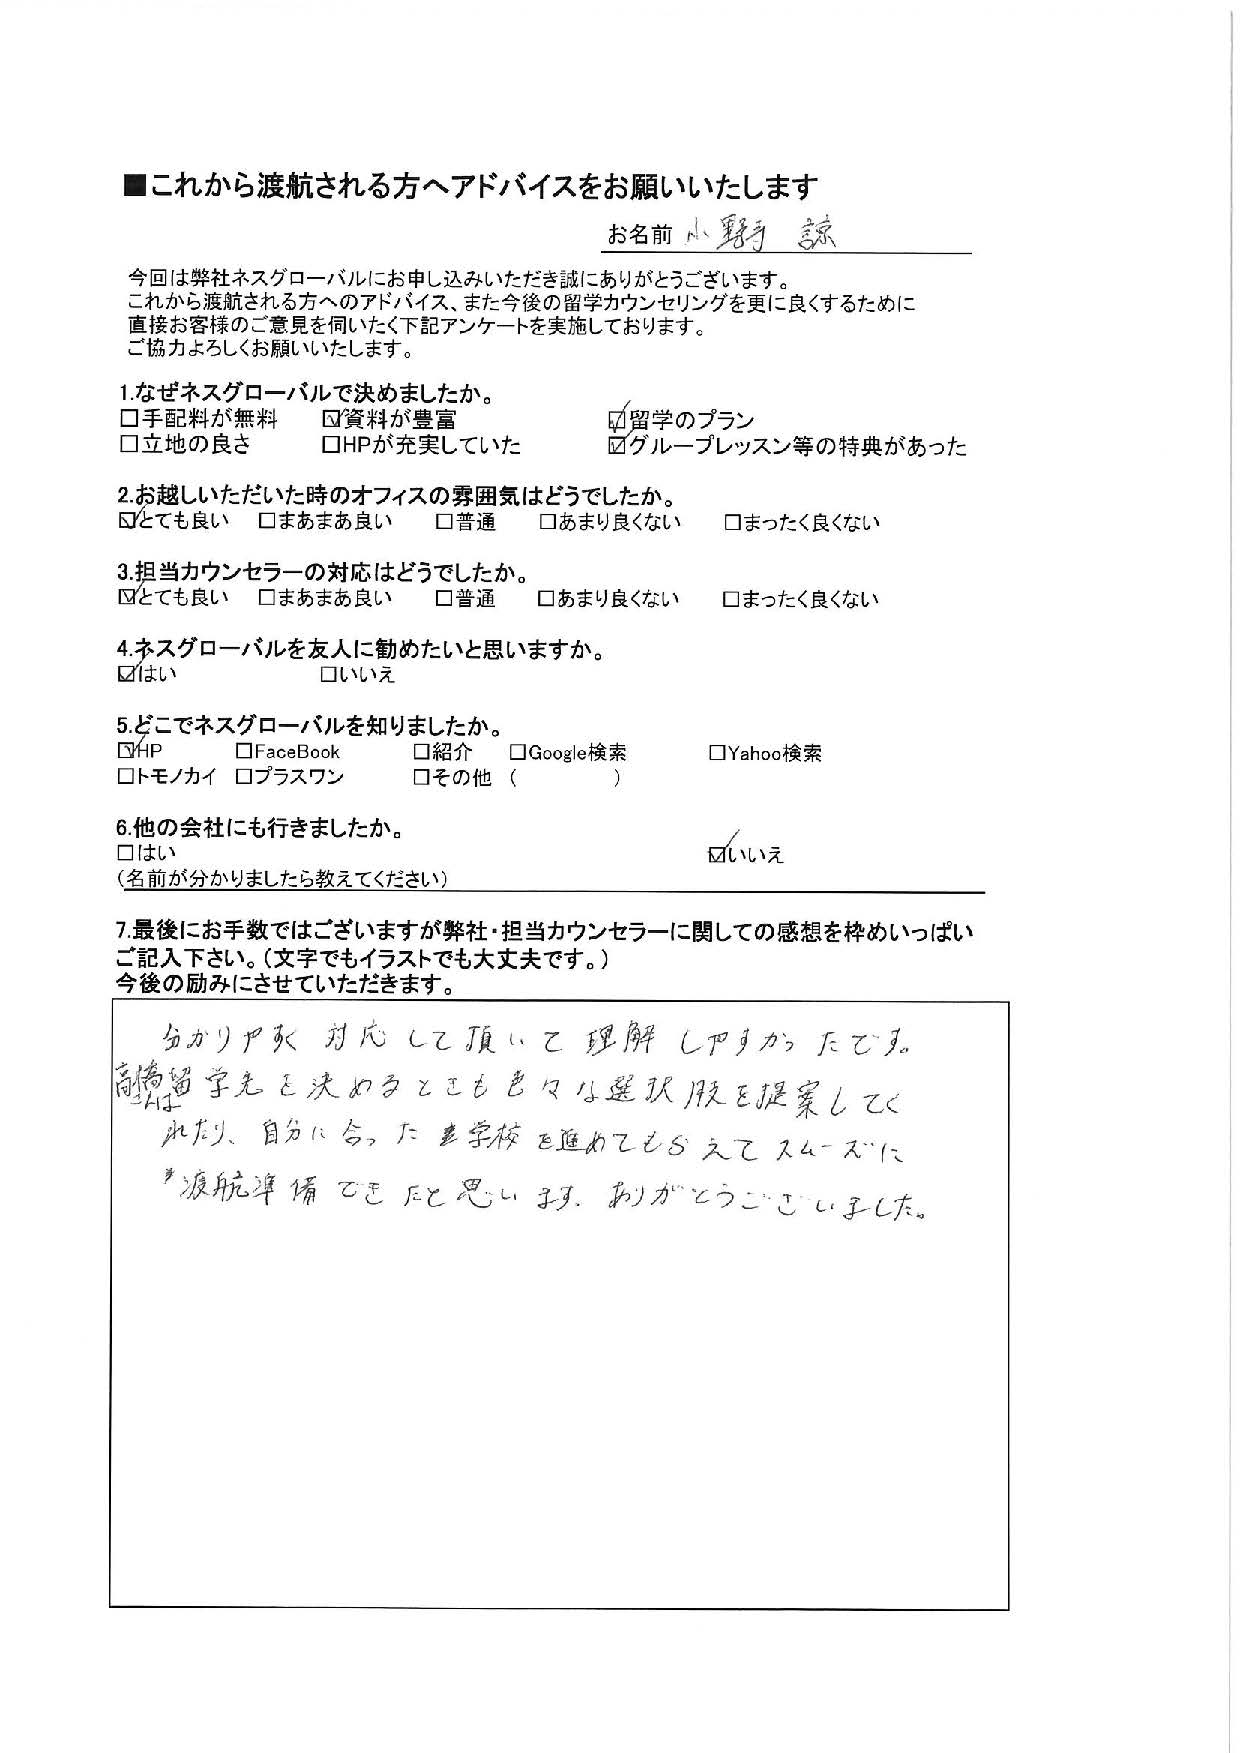 ■これから渡航される方へアドバイスをお願いいたします
お名前 小野 諒
今回は弊社ネスグローバルにお申し込みいただき誠にありがとうございます。
これから渡航される方へのアドバイス、また今後の留学カウンセリングを更に良くするために
直接お客様のご意見を伺いたく下記アンケートを実施しております。
ご協力よろしくお願いいたします。
1.なぜネスグローバルで決めましたか。
□手配料が無料 ☑資料が豊富 ☑留学のプラン
□立地の良さ □HPが充実していた ☑グループレッスン等の特典があった
2.お越しいただいた時のオフィスの雰囲気はどうでしたか。
☑とても良い □まあまあ良い □普通 □あまり良くない □まったく良くない
3.担当カウンセラーの対応はどうでしたか。
☑とても良い □まあまあ良い □普通 □あまり良くない □まったく良くない
4.ネスグローバルを友人に勧めたいと思いますか。
☑はい □いいえ
5.どこでネスグローバルを知りましたか。
☑HP □FaceBook □紹介 □Google検索 □Yahoo検索
□トモノカイ □プラスワン □その他 ( )
6.他の会社にも行きましたか。
□はい ☑いいえ
(名前が分かりましたら教えてください)
7.最後にお手数ではございますが弊社・担当カウンセラーに関しての感想を枠めいっぱい
ご記入下さい。(文字でもイラストでも大丈夫です。)
今後の励みにさせていただきます。
分かりやすく 対応して頂いて 理解しやすかったです。
高橋さんは留学先を決めるときも色々な選択肢を提案してく
れたり、自分に合った学校を進めてもらえてスムーズに
渡航準備できたと思います。ありがとうございました。